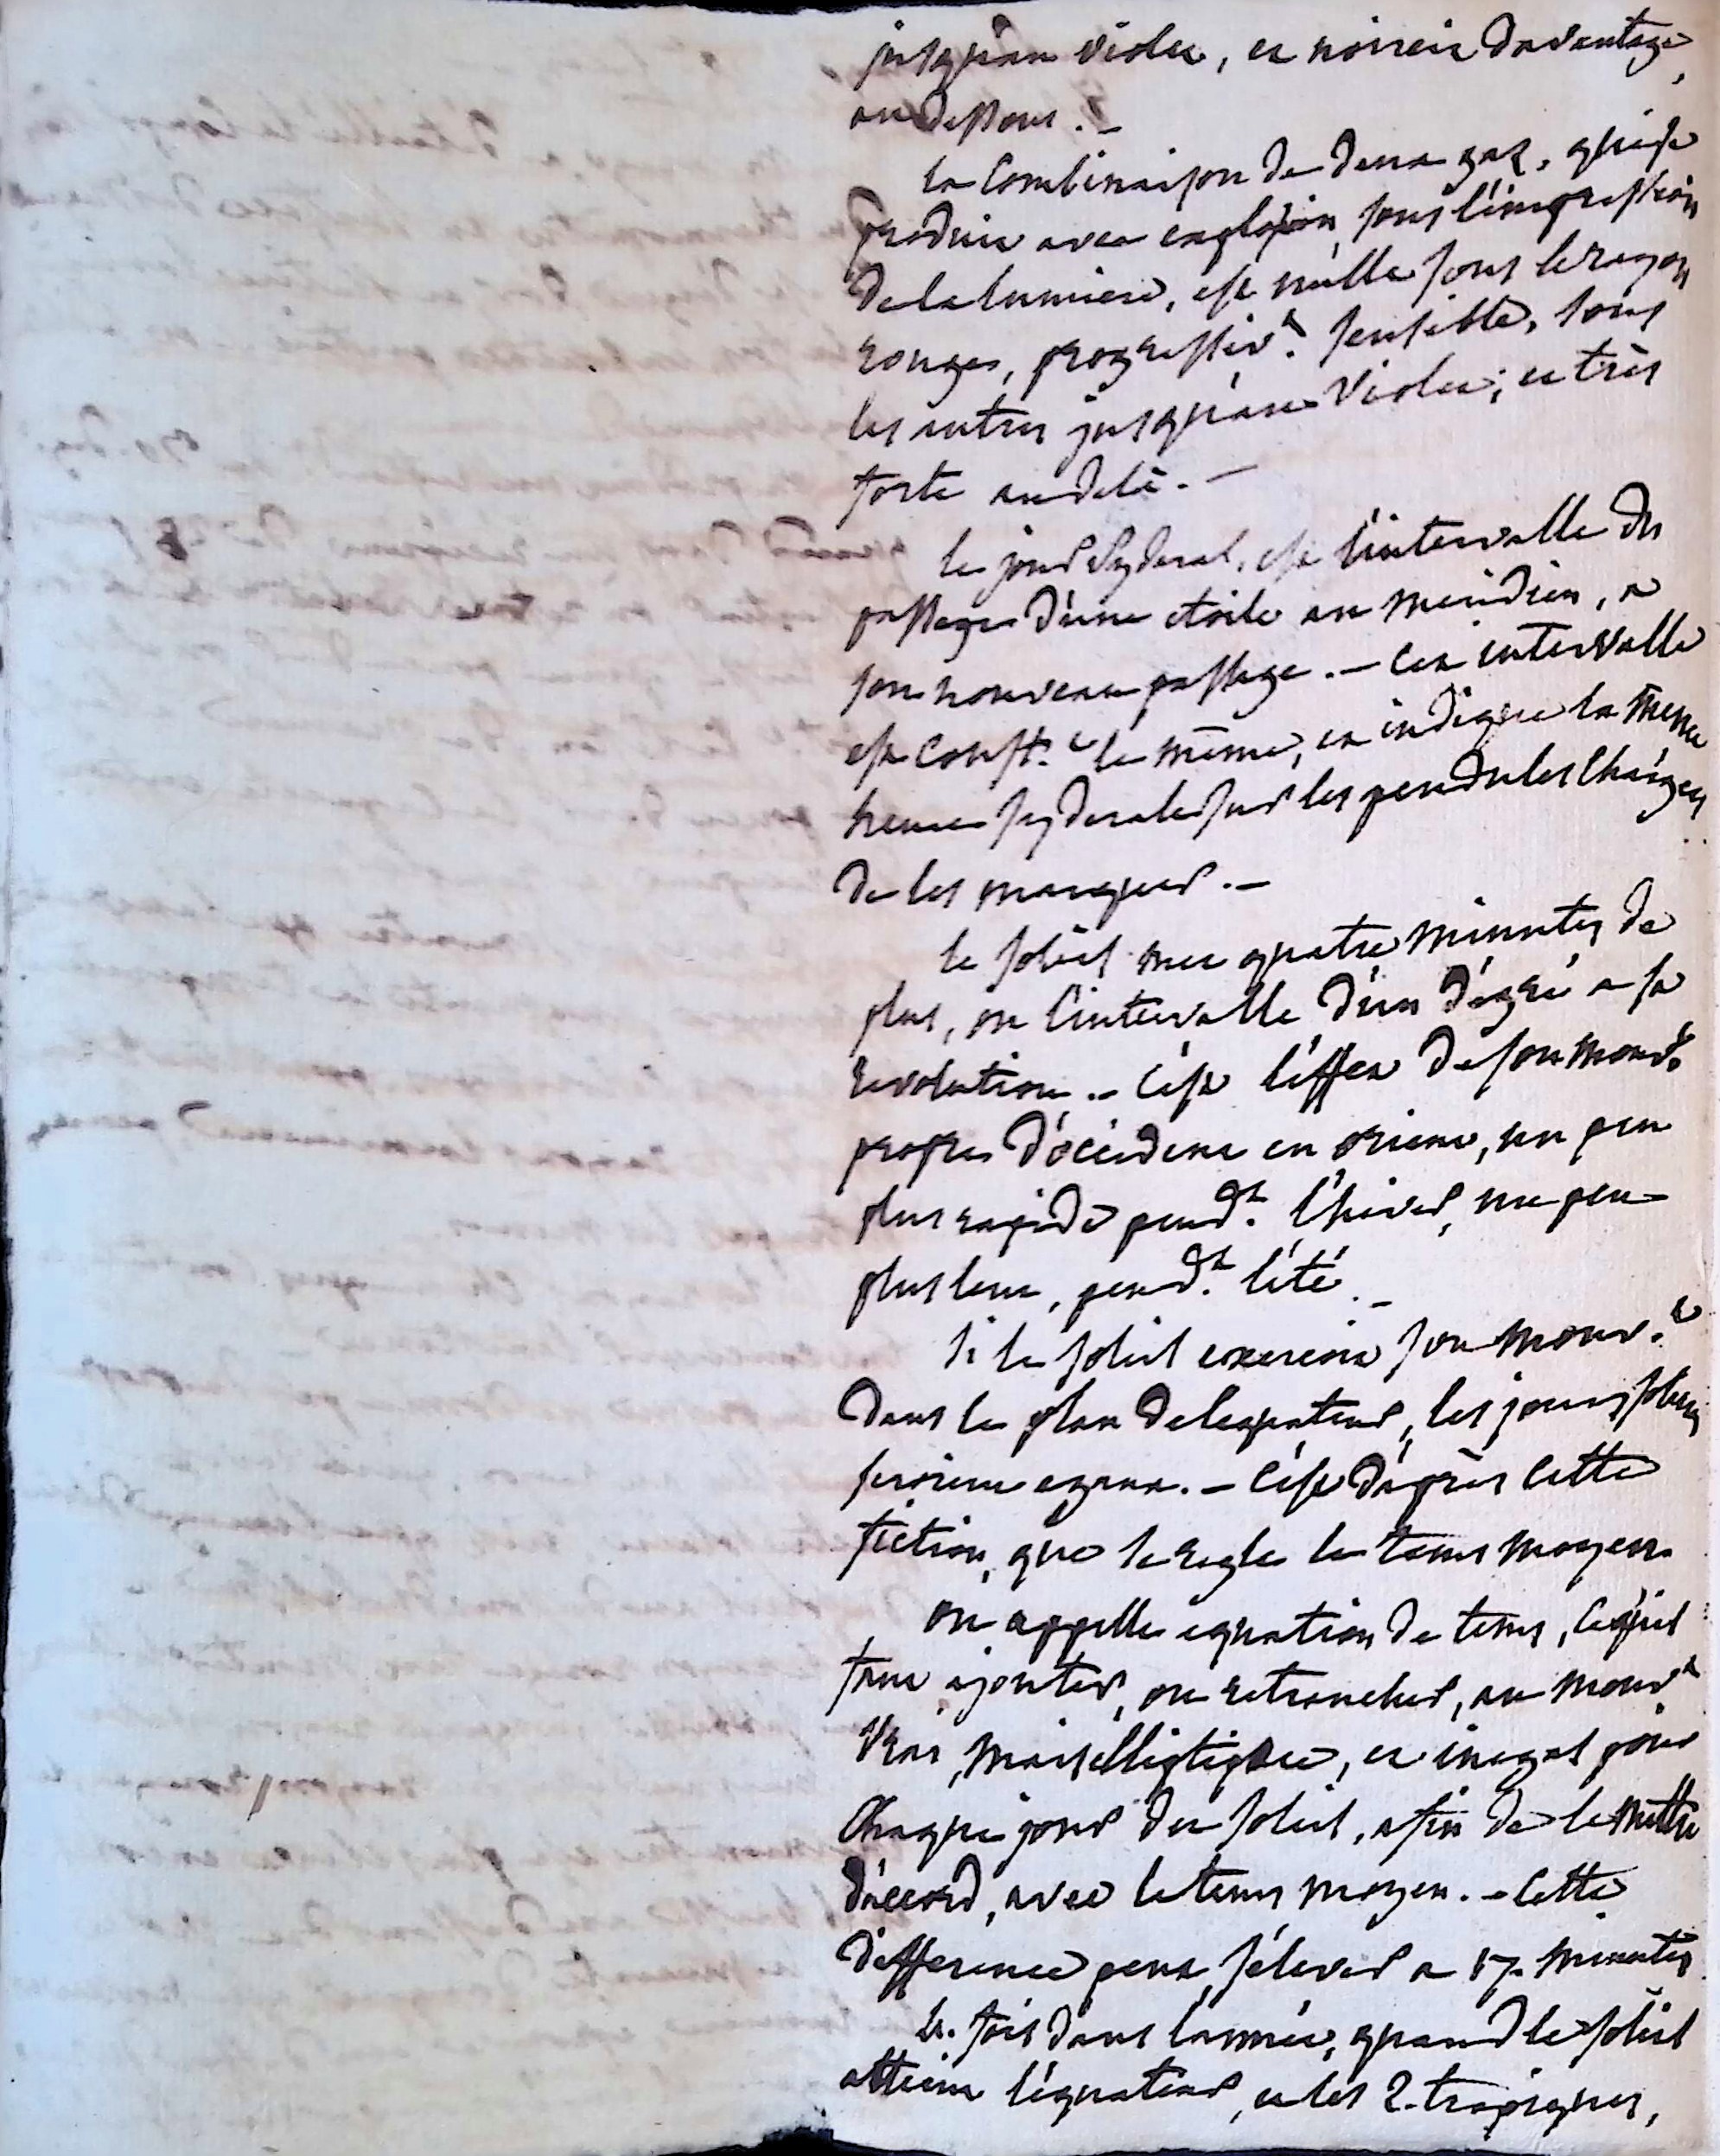 jusqu'au violet, et noircit davantage
au dessous. -
la combinaison de deux gaz, qui se
produit avec explosion, sous l'impression
de la lumiere, est nulle sous le rayon
rouge, progressivt. sensible, sous
les autres jusqu'au violet; et très
forte au delà. -
le jour syderal, est l'intervalle du
passage d'une etoile au meridien, a
son nouveau passage. - Cet intervalle
est const.t le même, et indique la même
heure syderale sur les pendules chargées
de les marquer. -
le soleil met quatre minutes de
plus, ou l'intervalle d'un dégré a sa
revolution. - C'est l'effet de son mouvt.
propre d'occident en orient, un peu
plus rapide pendt. l'hiver, un peu
plus lent, pendt. l'été. -
Si le soleil exercoit son mouv.t
dans le plan de lequateur, les jours solaires
seroient egaux. - C'est d'après cette
fiction, que se regle le tems moyen.
on appelle equation de tems, ce qu'il
faut ajouter, ou retrancher, au mouvt
vrai, mais elliptique, et inegal pour
chaque jour du soleil, afin de le mettre
d'accord, avec le tems moyen. - Cette
difference peut s'élever a 17. minutes
4. fois dans l'année, quand le soleil
atteint l'équateur, et les 2. tropiques,